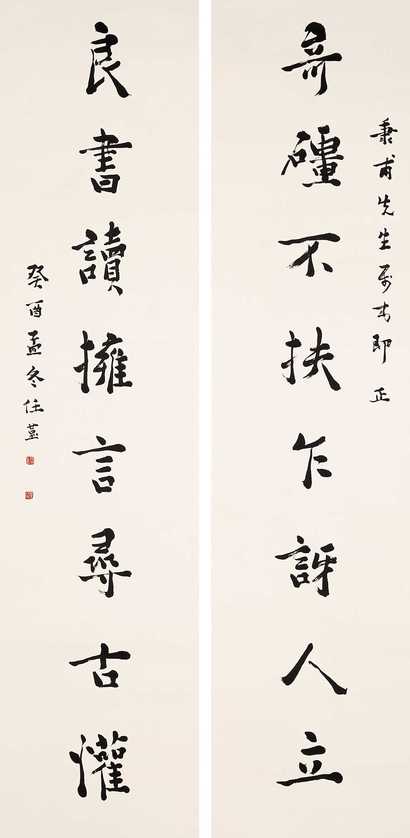 秉甫先生屬書即正
竒礓不扶乍訝人立
良書讀擁言尋古灌
癸酉孟冬任堇